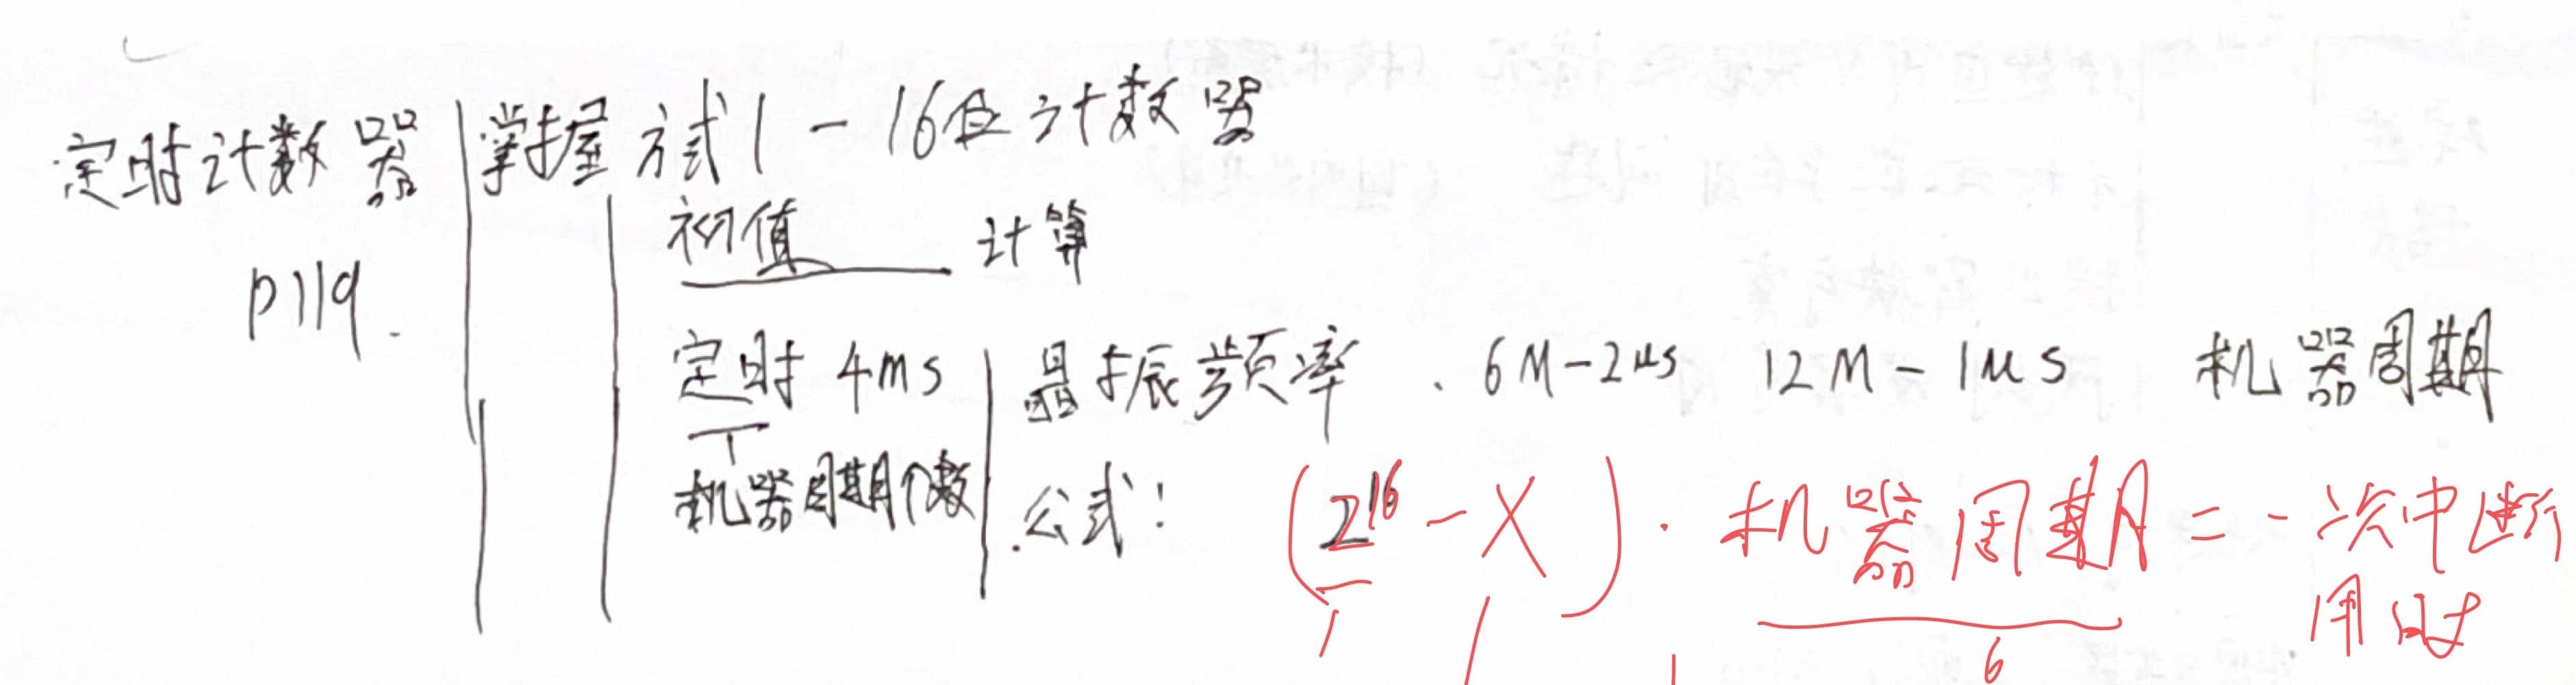 定时计数器 掌握方式1 - 16位计数器
p119.
初值 计算
定时 4ms 晶振频率 、6M-2μs 12M-1μs 机器周期
机器周期个数 公式: (2^16 - X)·机器周期 = 一次中断
用时
6